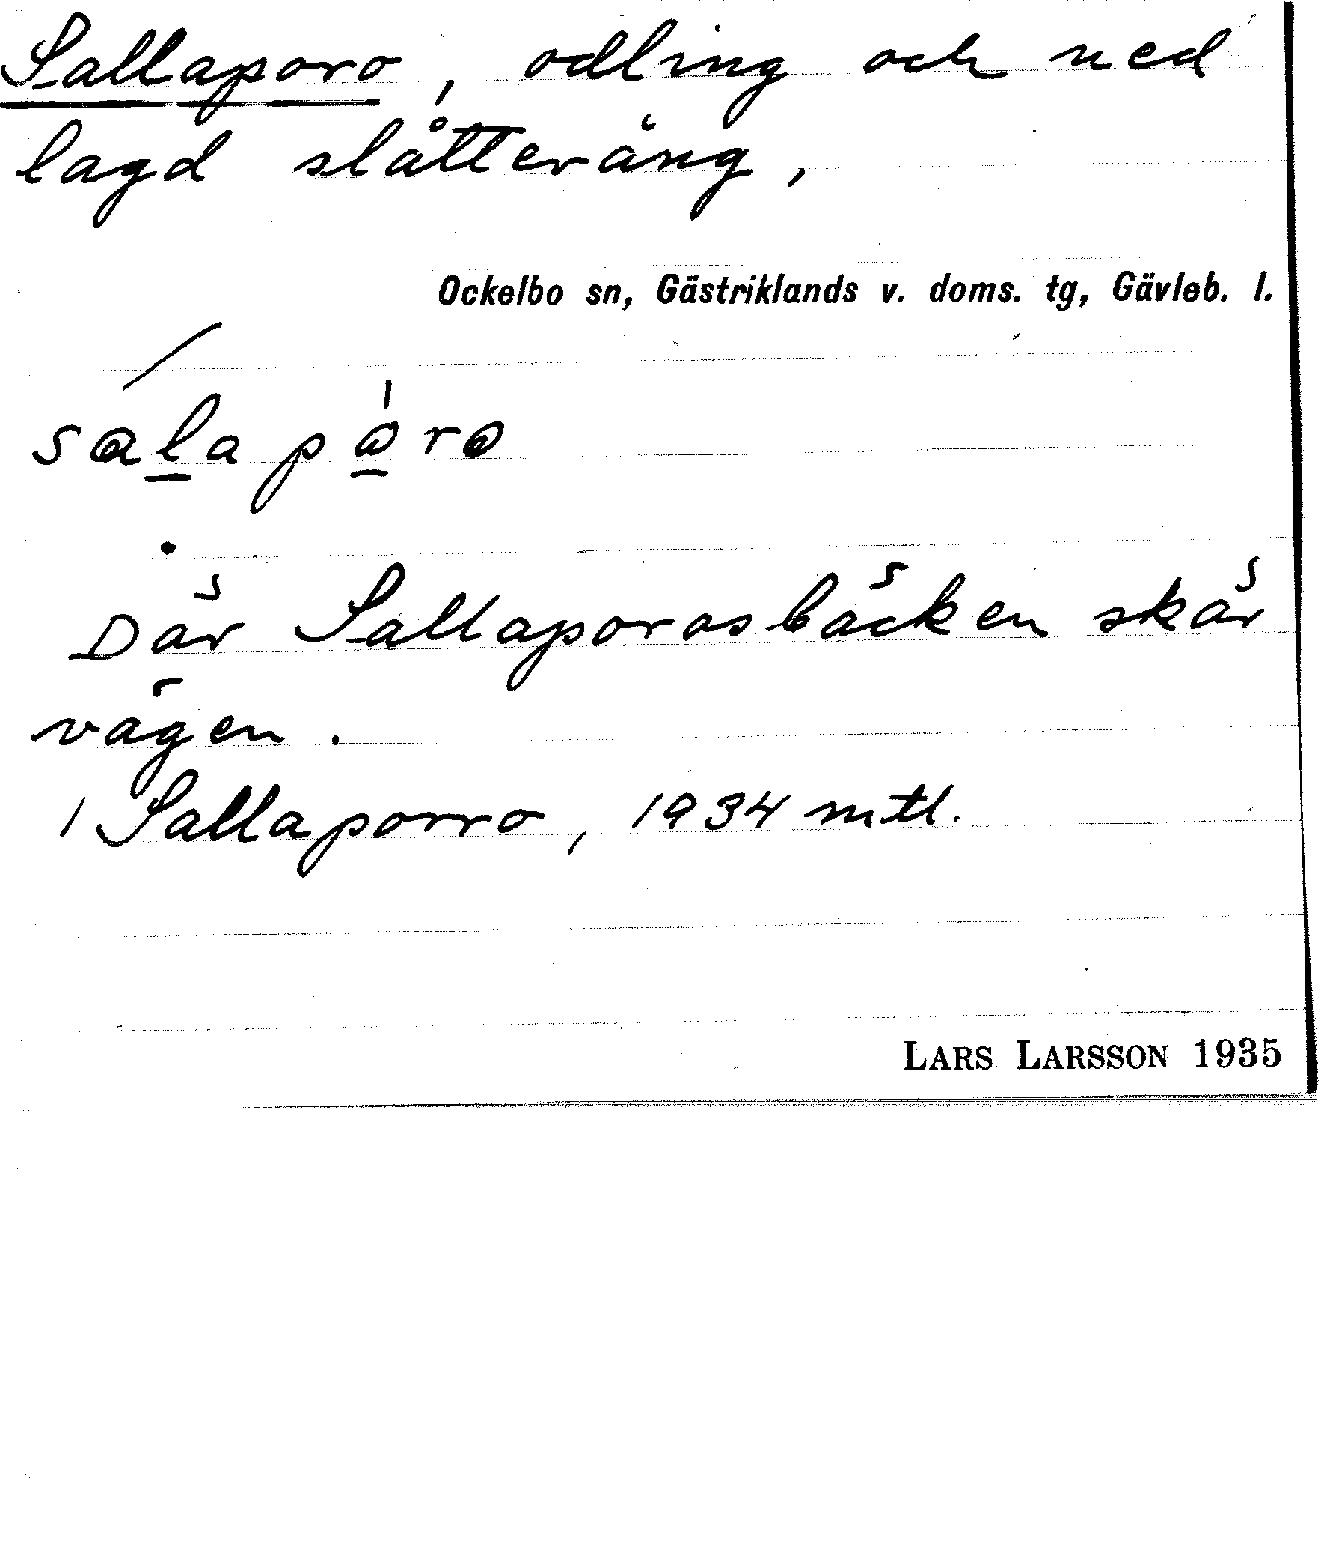 Sallaporo, odling och ned
lagd slåtteräng,
Ockelbo sn, Gästriklands v. doms. tg, Gävleb. l.
salaporo
Där Sallaporosbäcken skär
vägen.
1 Sallaporro, 1934 mtl.
LARS LARSSON 1935